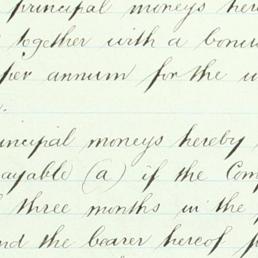 principal moneys here
together with a bonu
per annum for the u
.
incipal moneys hereby
ayable (a) if the Com
three months in the
nd the bearer hereof